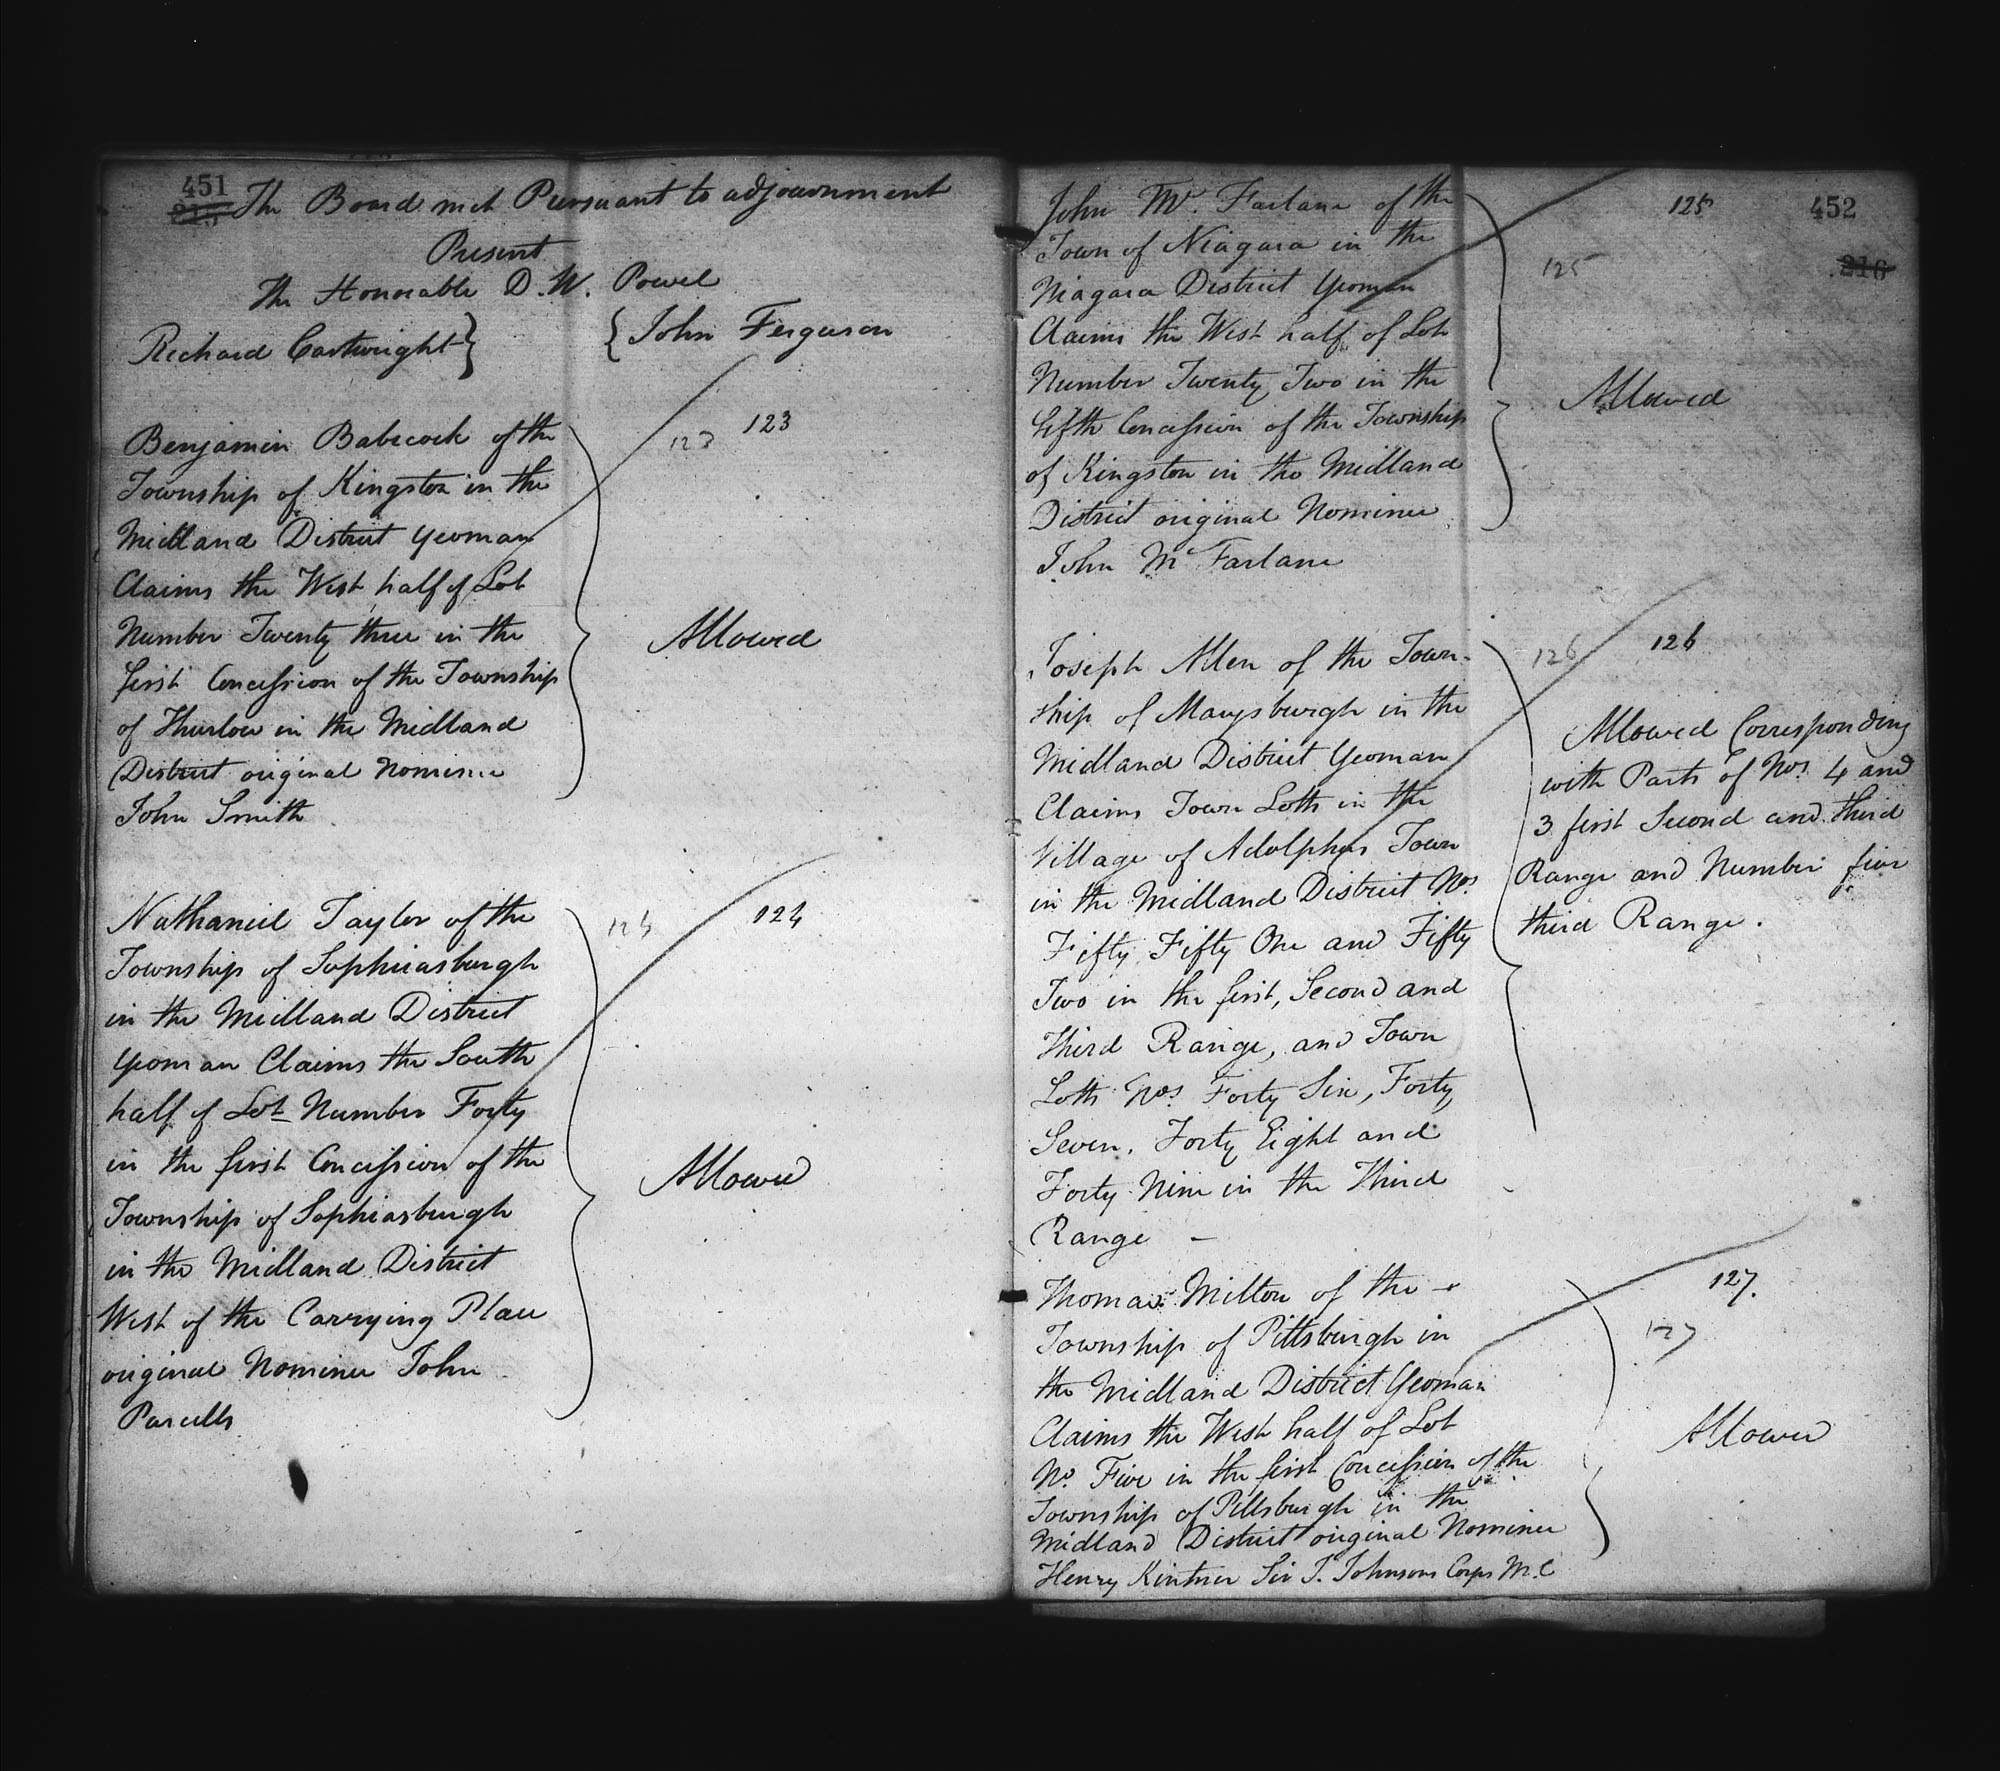 451
215
The Board met Pursuant to adjournment
Present
The Honorable D. W. Powel
Richard Cartwright } { John Ferguson
123
123
Benjamin Babcock of the
Township of Kingston in the
Midland District yeoman
Claims the West half of Lot
Number Twenty three in the
first Concession of the Township
of Thurlow in the Midland
District original Nominee
John Smith
Allowed
124
124
Nathaniel Taylor of the
Township of Sophiasburgh
in the Midland District
yeoman Claims the South
half of Lot Number Forty
in the first Concession of the
Township of Sophiasburgh
in the Midland District
West of the Carrying Place
original Nominee John
Purcells
Allowed
125
452
216
125
John Mc. Farlane of the
Town of Niagara in the
Niagara District yeoman
Claims the West half of Lot
Number Twenty Two in the
fifth Concession of the Township
of Kingston in the Midland
District original Nominee
John Mc Farlane
Allowed
126
126
Joseph Allen of the Town-
ship of Marysburgh in the
Midland District Yeoman
Claims Town Lotts in the
Village of Adolphus Town
in the Midland District Nos
Fifty, Fifty One and Fifty
Two in the first, Second and
Third Range, and Town
Lotts Nos. Forty Six, Forty
Seven, Forty Eight and
Forty Nine in the Third
Range —
Allowed Corresponding
with Parts of Nos. 4 and
3 first Second and third
Range and Number five
third Range.
127.
127
Thomas Milton of the
Township of Pittsburgh in
the Midland District Yeoman
Claims the West half of Lot
No. Five in the first Concession of the
Township of Pittsburgh in the
Midland District original Nominee
Henry Kintner Sir J. Johnsons Corps M.C
Allowed